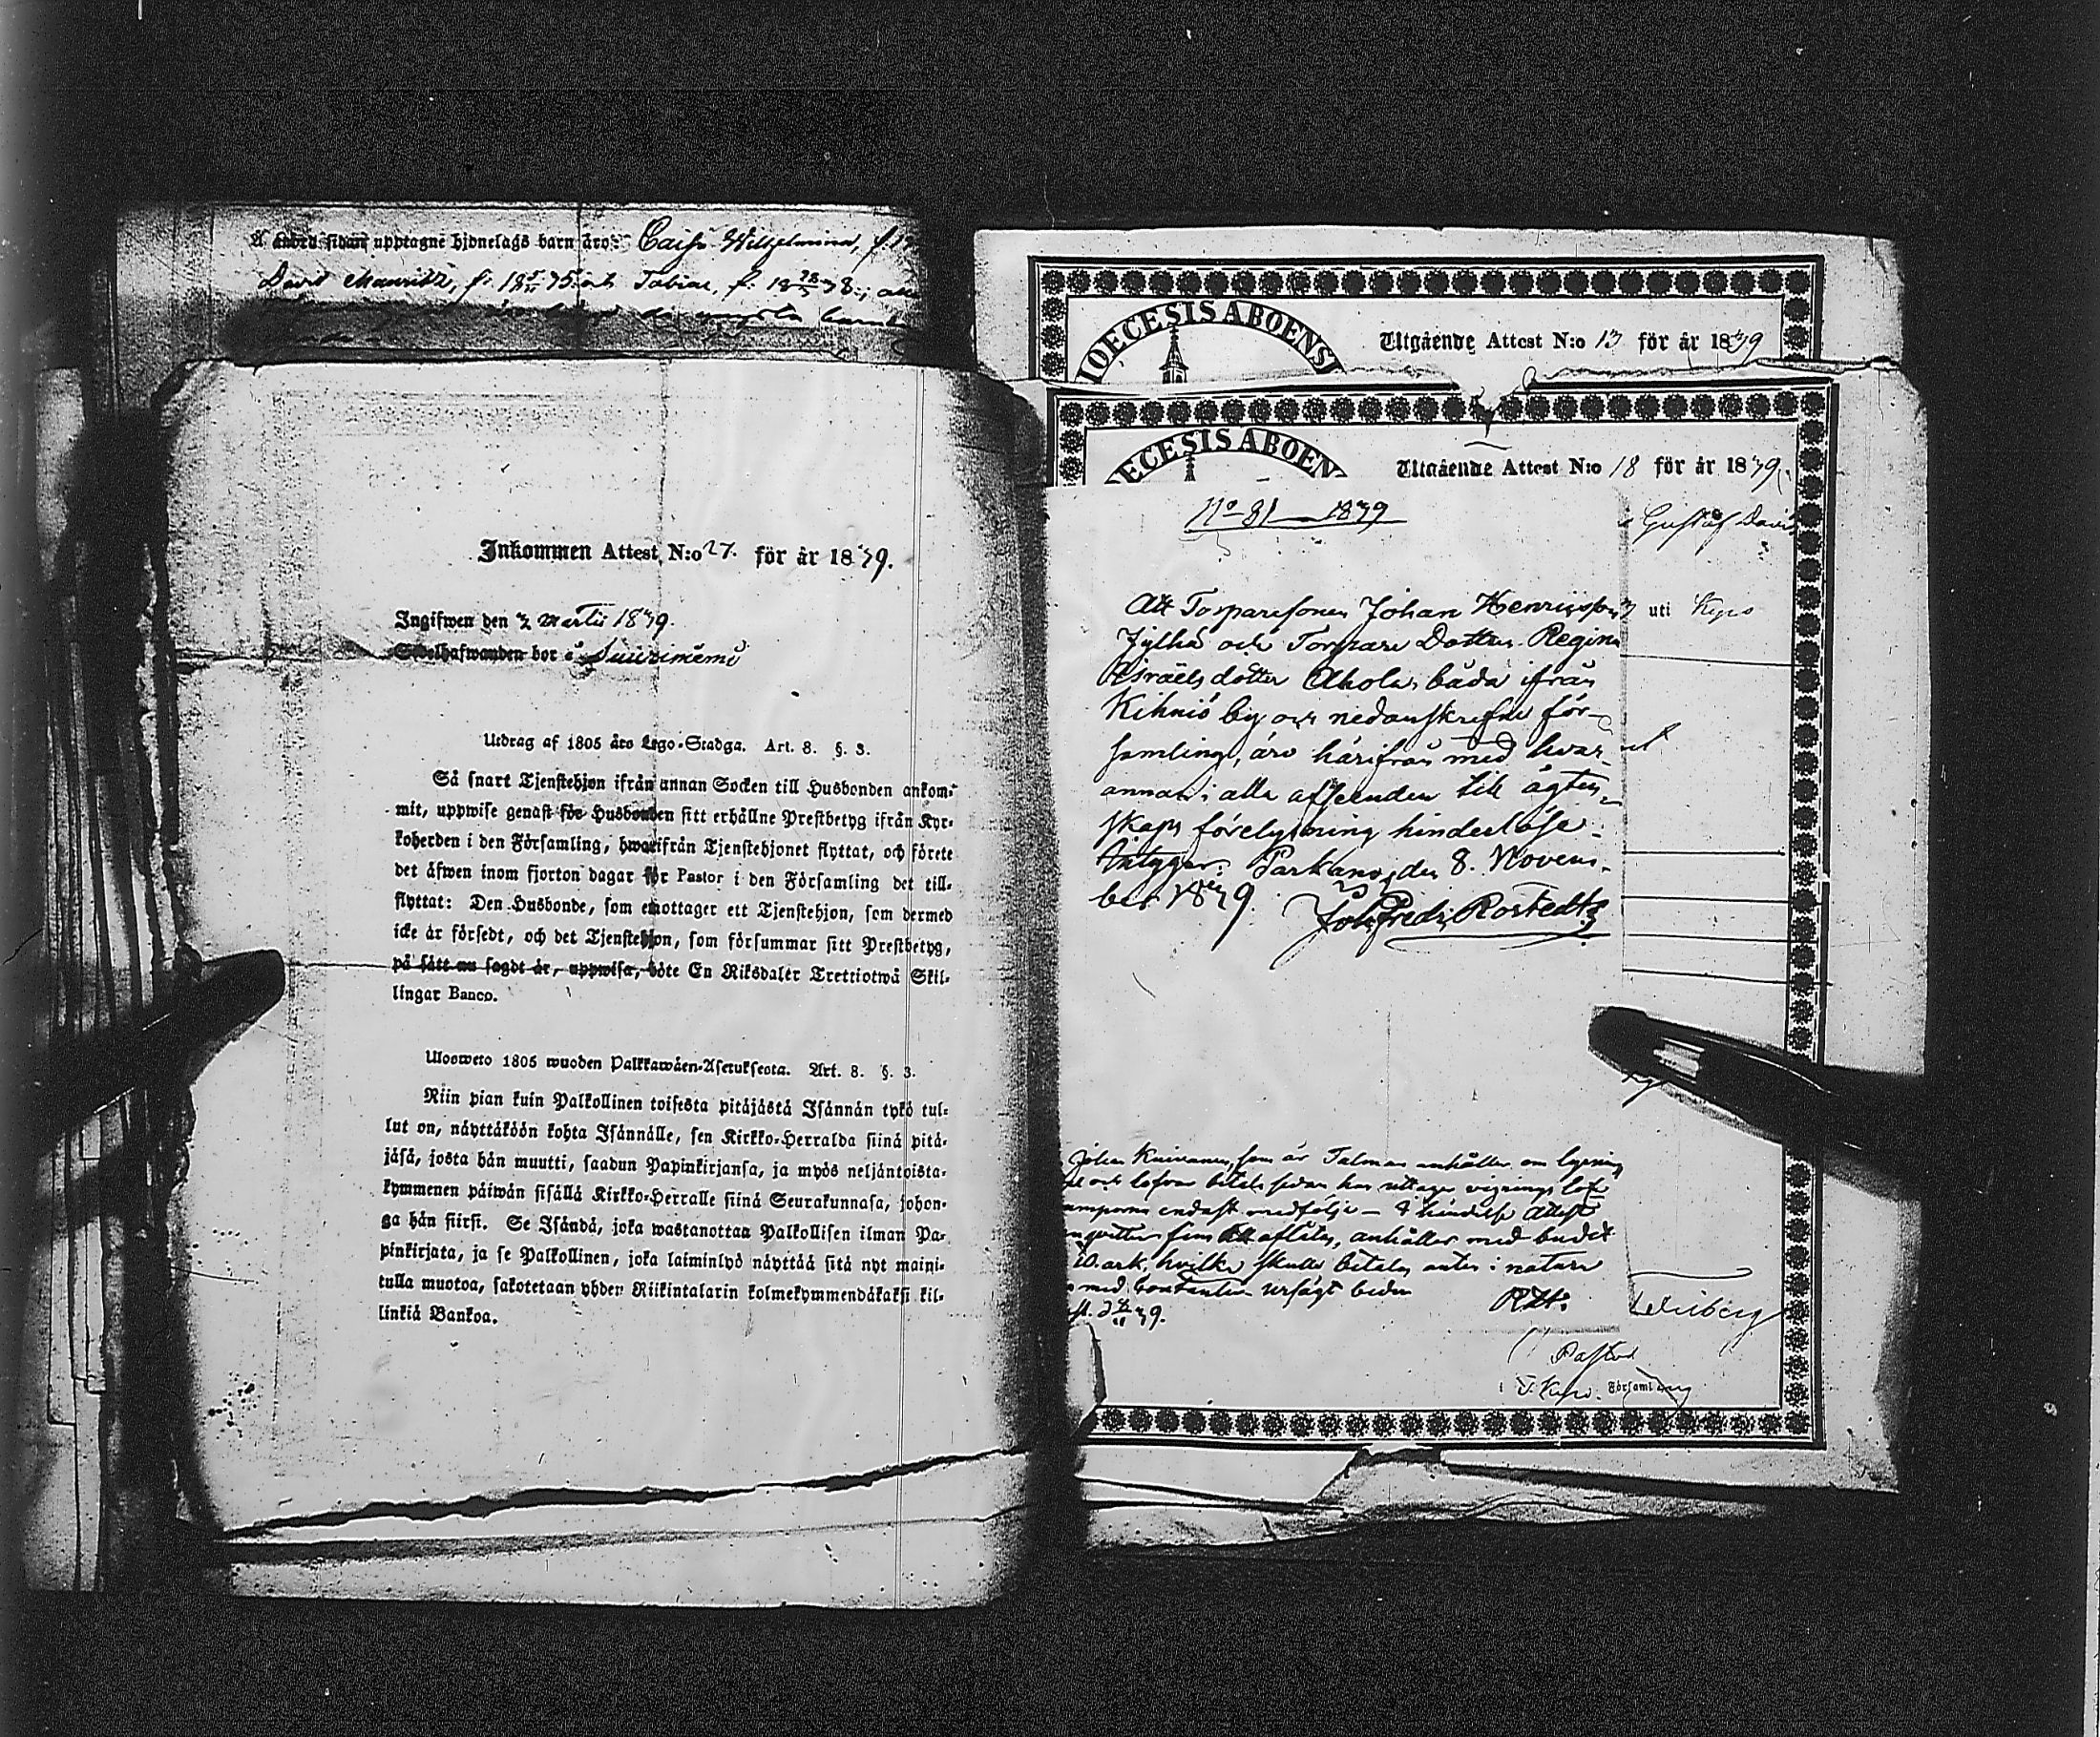 Å andra sidan upptagne hjonelags barn äro: Wilhelmina, f. 18
David Mauritz, f. 18 75 och Tobias, f. 18 78;
de yngsta
Inkommen Attest N:o 27. för år 1879.
Ingifwen den Martii 1879.
Sedelhafwanden bor å Suurimemi
Utdrag af 1805 års Lego-Stadga. Art. 8. §. 3.
Så snart Tjenstehjon ifrån annan Socken till Husbonden ankom-
mit, uppwise genast för Husbonden sitt erhållne Prestbetyg ifrån Kyr-
koherden i den Församling, hwarifrån Tjenstehjonet flyttat, och förete
det äfwen inom fjorton dagar för Pastor i den Församling det till-
flyttat: Den Husbonde, som emottager ett Tjenstehjon, som dermed
icke är försedt, och det Tjenstehjon, som försummar sitt Prestbetyg,
på sätt nu sagdt är, uppwisa, böte En Riksdaler Trettiotwå Skil-
lingar Banco.
Ulosweto 1805 wuoden Palkkawäen-Asetuksesta. Art. 8. §. 3.
Niin pian kuin Palkollinen toisesta pitäjästä Isännän tykö tul-
lut on, näyttäköön kohta Isännälle, sen Kirkko-Herralda siinä pitä-
jäsä, josta hän muutti, saadun Papinkirjansa, ja myös neljäntoista-
kymmenen päiwän sisällä Kirkko-Herralle siinä Seurakunnasa, johon-
ga hän siirsi. Se Isändä, joka wastanottaa Palkollisen ilman Pa-
pinkirjata, ja se Palkollinen, joka laiminlyö näyttää sitä nyt maini-
tulla muotoa, sakotetaan yhden Riikintalarin kolmekymmendäkaksi kil-
linkiä Bankoa.
DIOECESIS ABOENSI
Utgående Attest N:o 13 för år 1879
ECESIS ABOEN
Utgående Attest N:o 18 för år 1879.
No 81 1879
Gustaf Davi
Att Torparesonen Johan Henriksson
Jylhä och Torpare Dotter Regina
Israëls dotter Ahola, båda ifrån
Kihniö by och nedanskrefne för-
samling, äro härifrån med hvar-
annan i alla afseenden till ägten-
skaps förelysning hinderlöse.
Intygar: Parkano, den 8. Novem-
ber 1879.
Joh. Fredr. Rostedt
uti Kyro
Johan som är Talman anhåller om lysning
och lofvar betala sedan han uttager vignings
endast medfölje
anhåller med budet
10. ark, hvilka skulle betalas antin i natura
med
79.
Pastor
i Kyro Församling